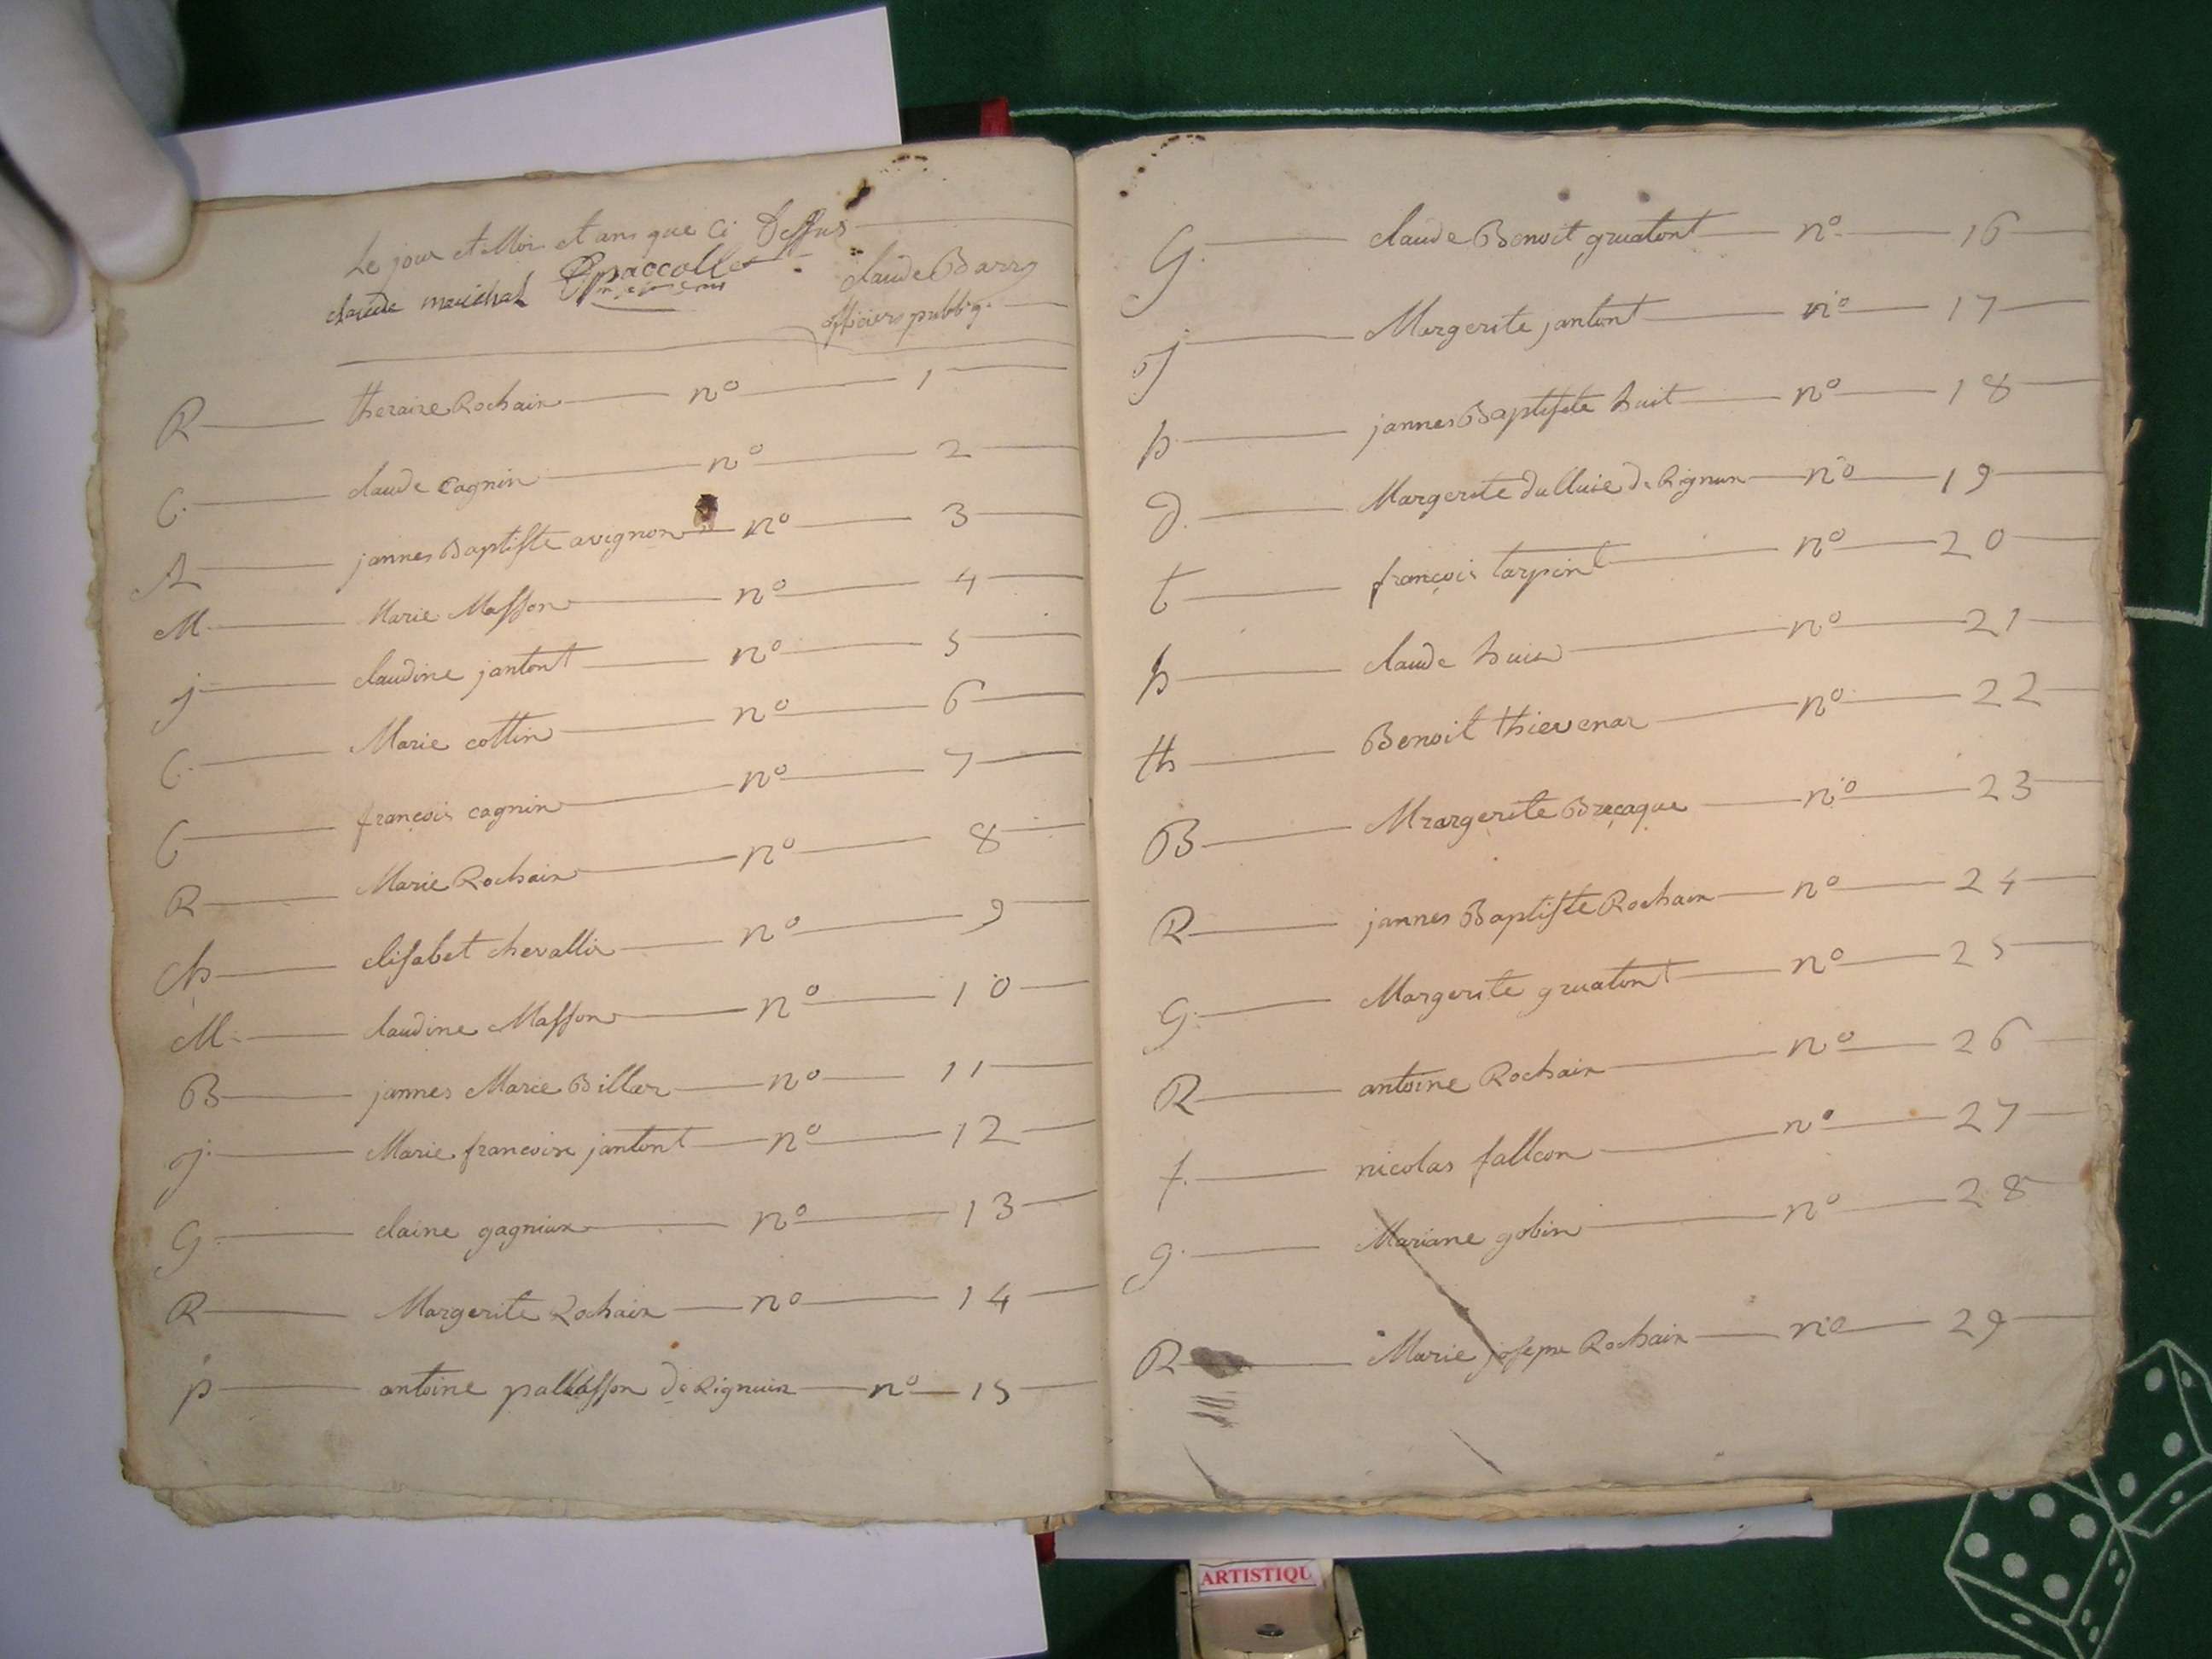 Le jour et Moi et ans que Ci Dessus
claude marichal Claude Barry
officiers publiq.
R theraize Rochain no 1
C. claude Cagnin no 2
A jannes Baptiste avignon no 3
M Marie Masson no 4
j claudine jantont no 5
C. Marie cottin no 6
C françois cagnin no 7
R Marie Rochain no 8
Ch elisabet chevallir no 9
M. claudine Masson no 10
B jannes Marie Biller no 11
j. Marie francoise jantont no 12
G. claine gagniux no 13
R Margerite Rochain no 14
p antoine pallasson de Rignuin no 15
G. claude Benoit gruatont no 16
j Margerite jantont no 17
h. jannes Baptiste huit no 18
D. Margerite de Rignun no 19
t françois tarpint no 20
h claude huis no 21
th Benoit thievenar no 22
B Mrargerite Breçaque no 23
R jannes Baptiste Rochain no 24
G. Margerite gruatont no 25
R antoine Rochain no 26
f. nicolas fallcon no 27
g. Mariane gobin no 28
R Marie josepe Rochain no 29
ARTISTIQU